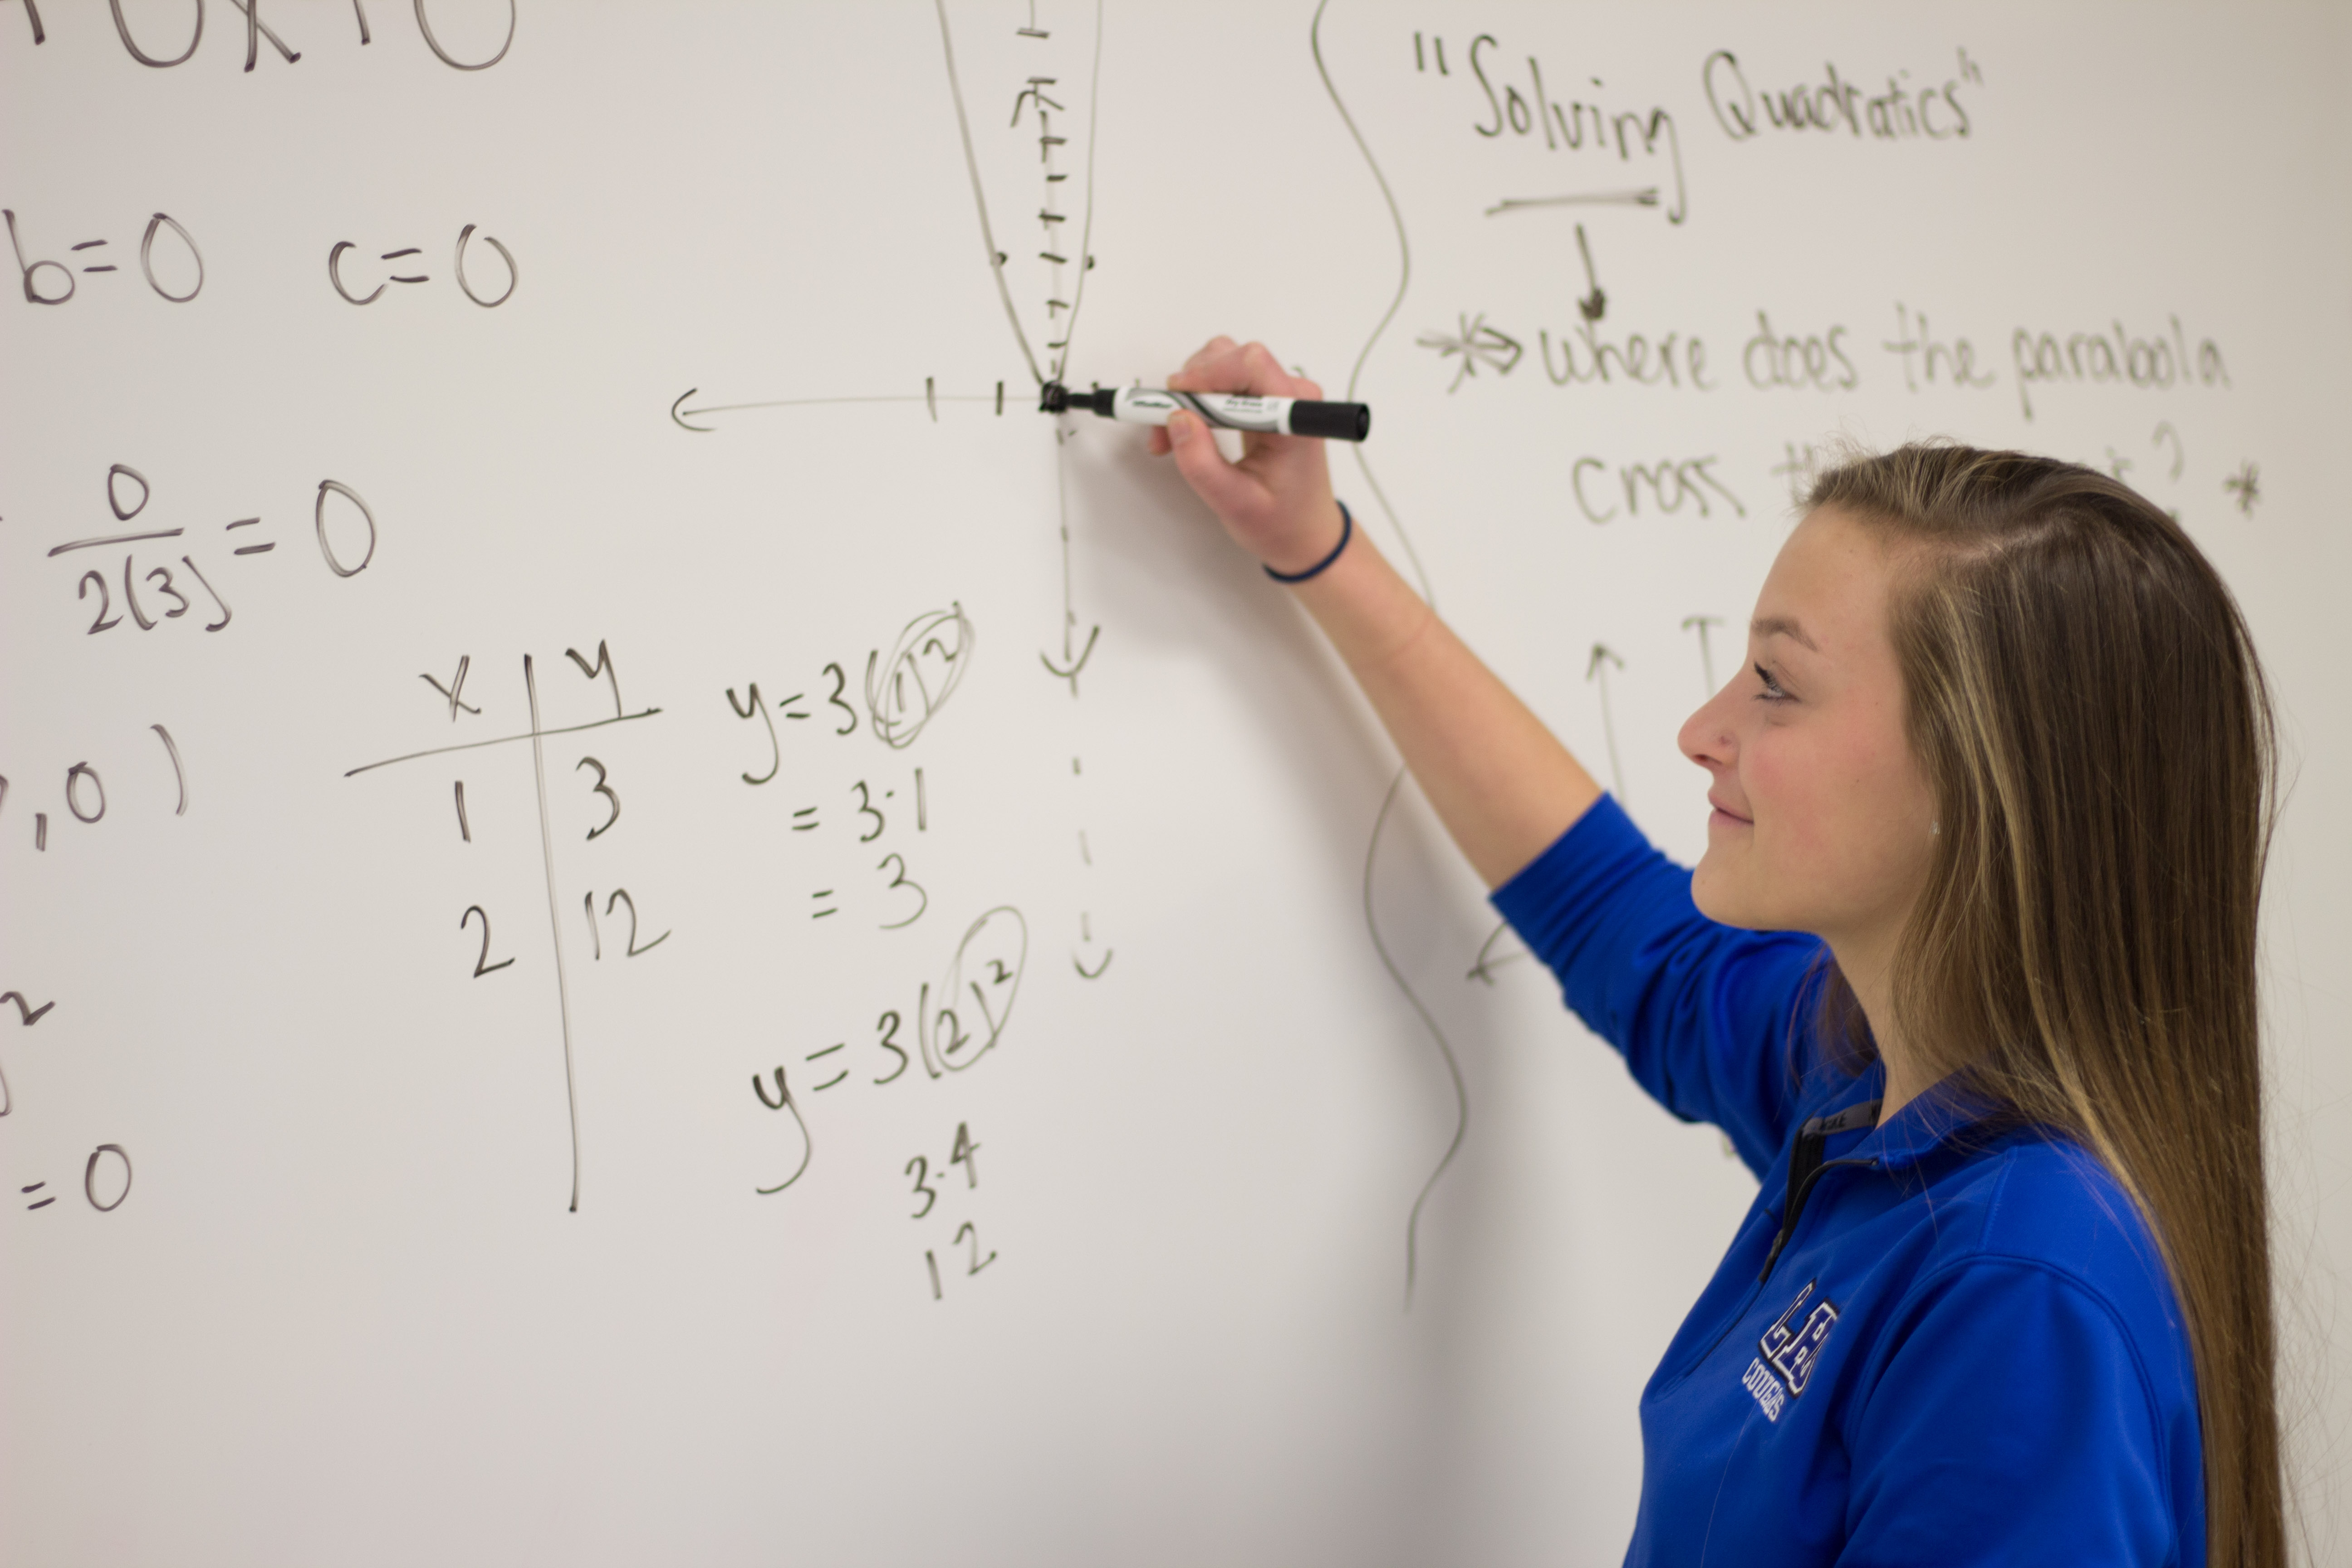 + 0x + 0
b=0 c=0
0
2(3) = 0
,0)
2
= 0
x y
1 3
2 12
y=3(1)²
= 3·1
= 3
y=3(2)²
3·4
12
"Solving Quadratics"
where does the parabola
cross
?
LH
COUGARS